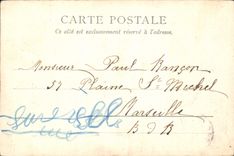 CARTE POSTALE
Ce côté est exclusivement réservé à l'adresse.
Monsieur Paul Rançon
59 Plaine St Michel
Marseille
B D R